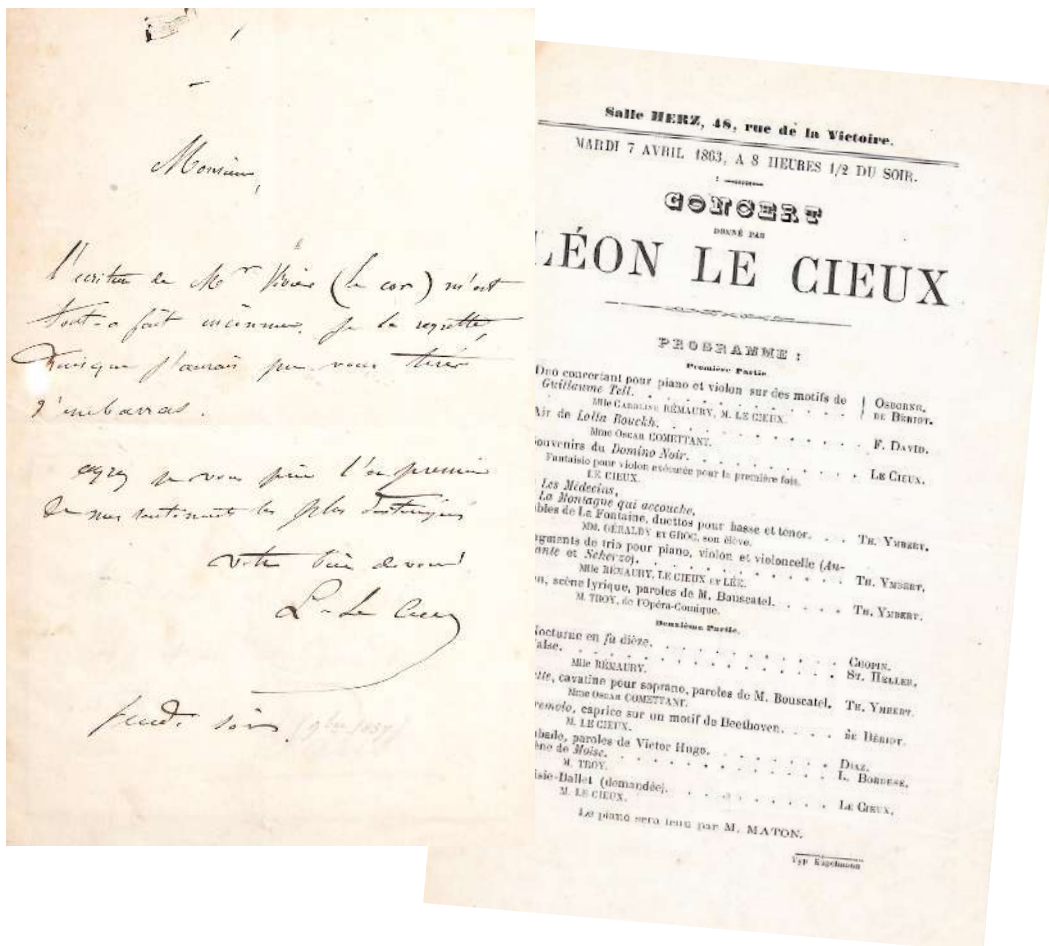 Monsieur,
l'écriture de Mr Vivier (le cor) m'est
tout-à fait inconnue. Je le regrette,
Puisque j'aurais pu vous tirer
d'embarras.
agréez je vous prie l'expression
de mes sentiments les plus distingués
votre bien dévoué
L. Le Cieux
jeudi soir (9bre 1857)
Salle HERZ, 48, rue de la Victoire.
MARDI 7 AVRIL 1863, A 8 HEURES 1/2 DU SOIR.
CONCERT
DONNÉ PAR
LÉON LE CIEUX
PROGRAMME :
Première Partie
Duo concertant pour piano et violon sur des motifs de
Guillaume Tell. } OSBORNE. DE BÉRIOT.
Mlle CAROLINE RÉMAURY, M. LE CIEUX.
Air de Lolla Rouckh. F. DAVID.
Mme OSCAR COMETTANT.
Souvenirs du Domino Noir. LE CIEUX.
Fantaisie pour violon exécutée pour la première fois.
LE CIEUX.
Les Médecins,
La Montagne qui accouche,
bles de La Fontaine, duettos pour basse et ténor. TH. YMBERT.
MM. GÉRALDY ET GROC, son élève.
agments de trio pour piano, violon et violoncelle (An-
ante et Scherzo). TH. YMBERT.
Mlle RÉMAURY, LE CIEUX ET LÉE.
on, scène lyrique, paroles de M. Bouscatel. TH. YMBERT.
M. TROY, de l'Opéra-Comique.
Deuxième Partie.
Nocturne en fa dièze. CHOPIN.
alse. ST. HELLER.
Mlle RÉMAURY.
tte, cavatine pour soprano, paroles de M. Bouscatel. TH. YMBERT.
Mme OSCAR COMETTANT.
remolo, caprice sur un motif de Beethoven. DE BÉRIOT.
M. LE CIEUX.
ubade, paroles de Victor Hugo. DIAZ.
ène de Moïse. L. BORDESE.
M. TROY.
isie-Ballet (demandée). LE CIEUX.
M. LE CIEUX.
Le piano sera tenu par M. MATON.
Typ Kugelmann